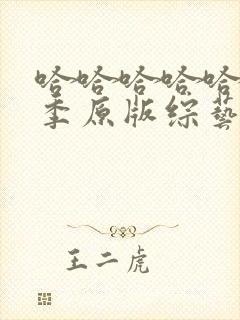 哈哈哈哈哈
季原版综艺
王二虎